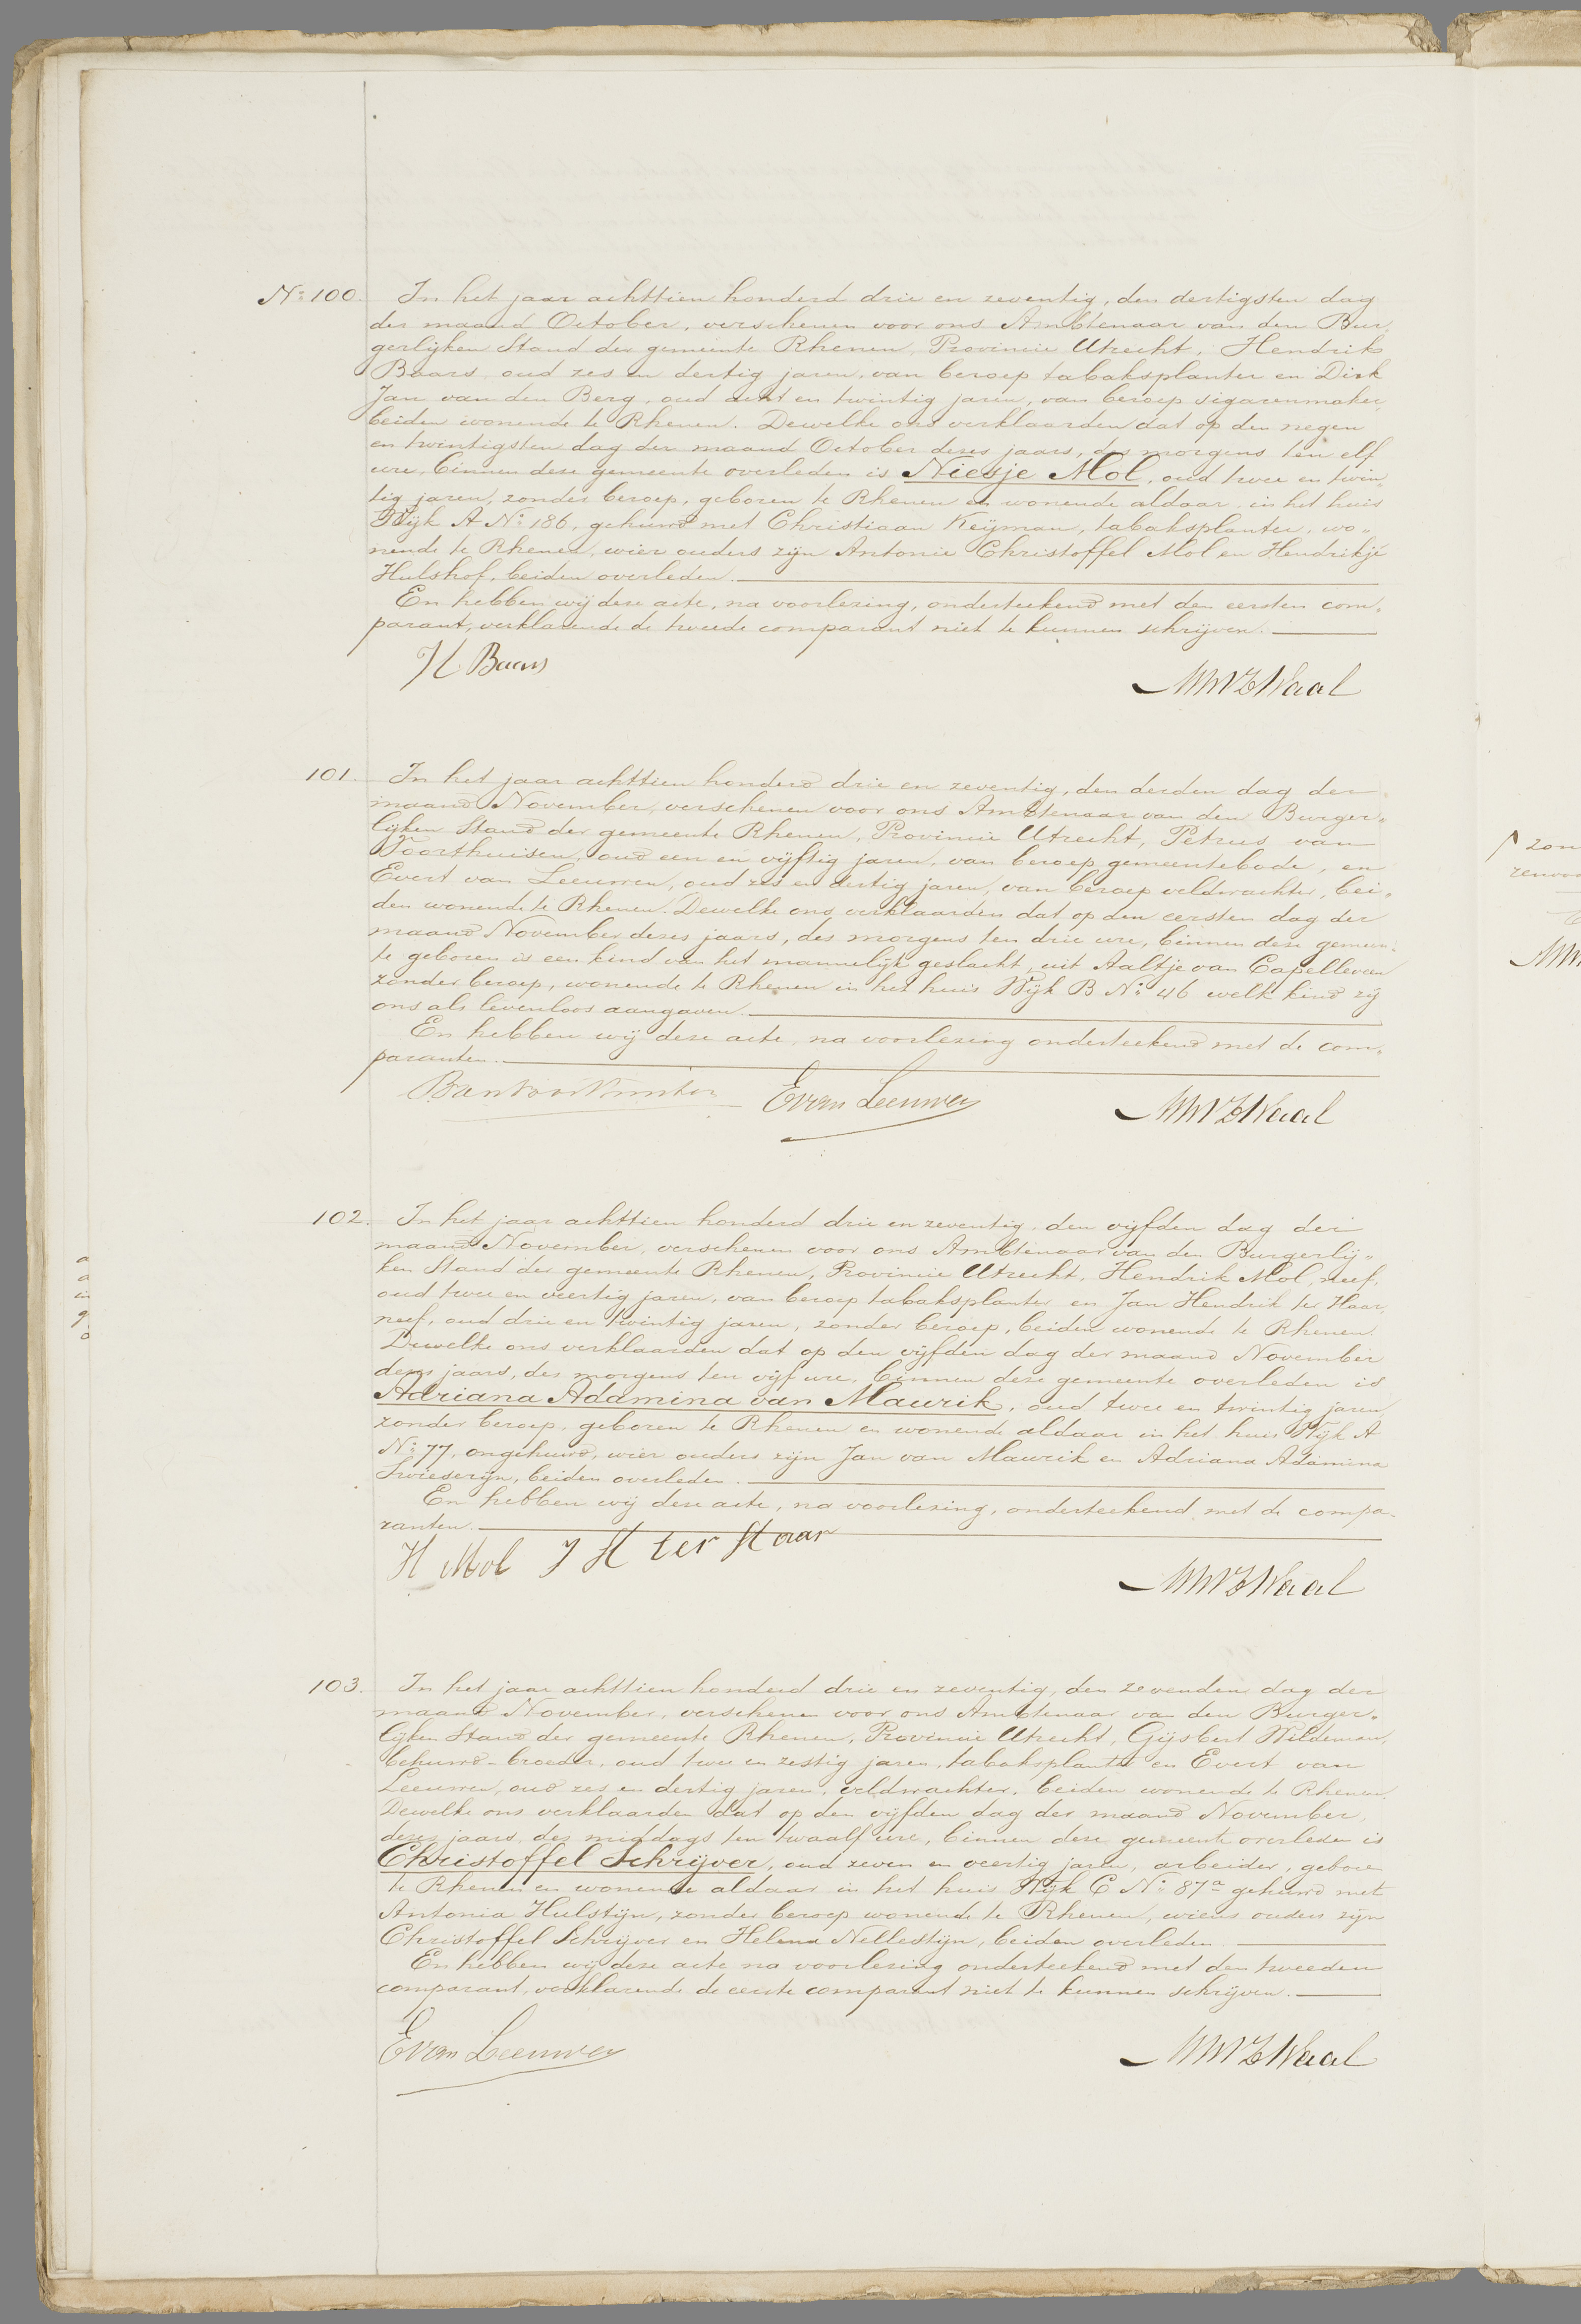 N:o 100. In het jaar achttien honderd drie en zeventig, den dertigsten dag
der maand October, verschenen voor ons Ambtenaar van den Bur„
gerlijken Stand der gemeente Rhenen, Provincie Utrecht, Hendrik
Baars, oud zes en dertig jaren, van beroep tabaksplanter en Dirk
Jan van den Berg, oud acht en twintig jaren, van beroep sigarenmaker,
beiden wonende te Rhenen. Dewelke ons verklaarden dat op den negen
en twintigsten dag der maand October dezes jaars, des morgens ten elf
ure, binnen deze gemeente overleden is Niesje Mol, oud twee en twin„
tig jaren, zonder beroep, geboren te Rhenen en wonende aldaar in het huis
Wijk A N:o 186, gehuwd met Christiaan Keijman, tabaksplanter, wo„
nende te Rhenen, wier ouders zijn Antonie Christoffel Mol en Hendrikje
Hulshof, beiden overleden.
En hebben wij deze acte, na voorlezing, onderteekend met den eersten com„
parant, verklarende de tweede comparant niet te kunnen schrijven.
H Baars
Waal
101. In het jaar achttien honderd drie en zeventig, den derden dag der
maand November, verschenen voor ons Ambtenaar van den Burger„
lijken Stand der gemeente Rhenen, Provincie Utrecht, Petrus van
Voorthuisen, oud een en vijftig jaren, van beroep gemeentebode, en
Evert van Leeuwen, oud zes en dertig jaren, van beroep veldwachter, bei„
den wonende te Rhenen. Dewelke ons verklaarden dat op den eersten dag der
maand November dezes jaars, des morgens ten drie ure, binnen deze gemeen„
te geboren is een kind van het mannelijk geslacht, uit Aaltje van Capelleveen
zonder beroep, wonende te Rhenen in het huis Wijk B N:o 46 welk kind zij
ons als levenloos aangaven.
En hebben wij deze acte, na voorlezing onderteekend met de com„
paranten.
E van Leeuwen
Waal
102. In het jaar achttien honderd drie en zeventig, den vijfden dag der
maand November, verschenen voor ons Ambtenaar van den Burgerlij„
ken Stand der gemeente Rhenen, Provincie Utrecht, Hendrik Mol, neef,
oud twee en veertig jaren, van beroep tabaksplanter en Jan Hendrik ter Haar,
neef, oud drie en twintig jaren, zonder beroep, beiden wonende te Rhenen.
Dewelke ons verklaarden dat op den vijfden dag der maand November
dezes jaars, des morgens ten vijf ure, binnen deze gemeente overleden is
Adriana Adamina van Maurik, oud twee en twintig jaren,
zonder beroep, geboren te Rhenen en wonende aldaar in het huis Wijk A
N:o 77, ongehuwd, wier ouders zijn Jan van Maurik en Adriana Adamina
beiden overleden.
En hebben wij deze acte, na voorlezing, onderteekend met de compa„
ranten.
H Mol J H ter Haar
Waal
103. In het jaar achttien honderd drie en zeventig, den zevenden dag der
maand November, verschenen voor ons Ambtenaar van den Burger„
lijken Stand der gemeente Rhenen, Provincie Utrecht, Gijsbert Wildeman,
behuwd-broeder, oud twee en zestig jaren, tabaksplanter en Evert van
Leeuwen, oud zes en dertig jaren, veldwachter, beiden wonende te Rhenen.
Dewelke ons verklaarden dat op den vijfden dag der maand November,
dezes jaars, des middags ten twaalf ure, binnen deze gemeente overleden is
Christoffel Schrijver, oud zeven en veertig jaren, arbeider, geboren
te Rhenen en wonende aldaar in het huis Wijk C N:o 87a gehuwd met
Antonia Hulstijn, zonder beroep wonende te Rhenen, wiens ouders zijn
Christoffel Schrijver en Helena Nellestijn, beiden overleden.
En hebben wij deze acte na voorlezing onderteekend met den tweeden
comparant, verklarende de eerste comparant niet te kunnen schrijven.
E van Leeuwen
Waal